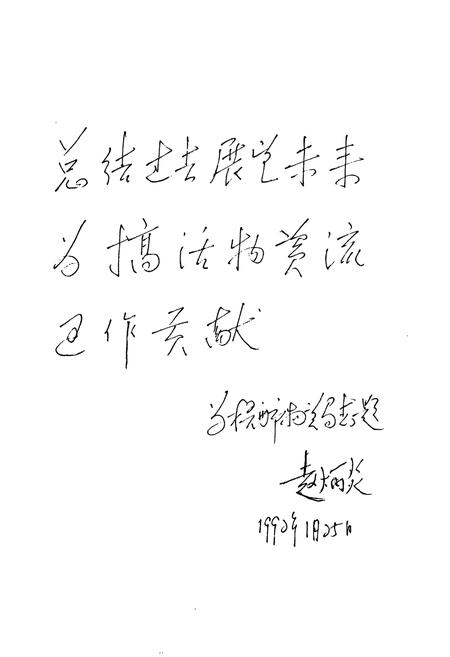 总结过去展望未来
为搞活物资流
通作贡献
为市物资局志题
赵炳炎
1992年1月25日